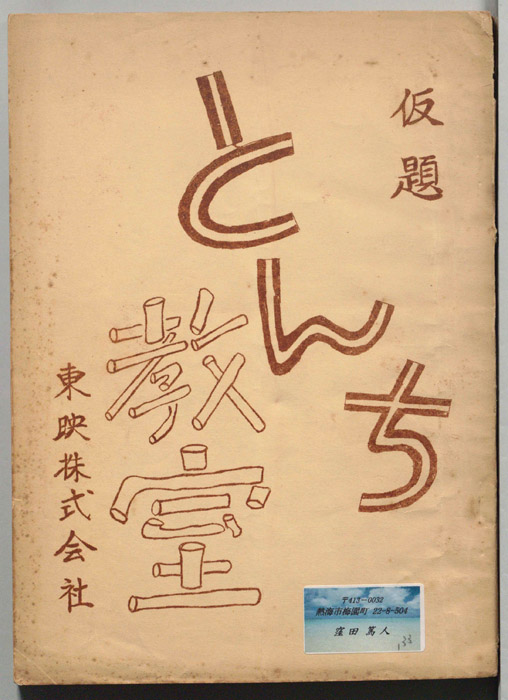 仮題
とんち
教室
東映株式会社
〒413-0032
熱海市梅園町 22-8-504
窪田 篤人
133